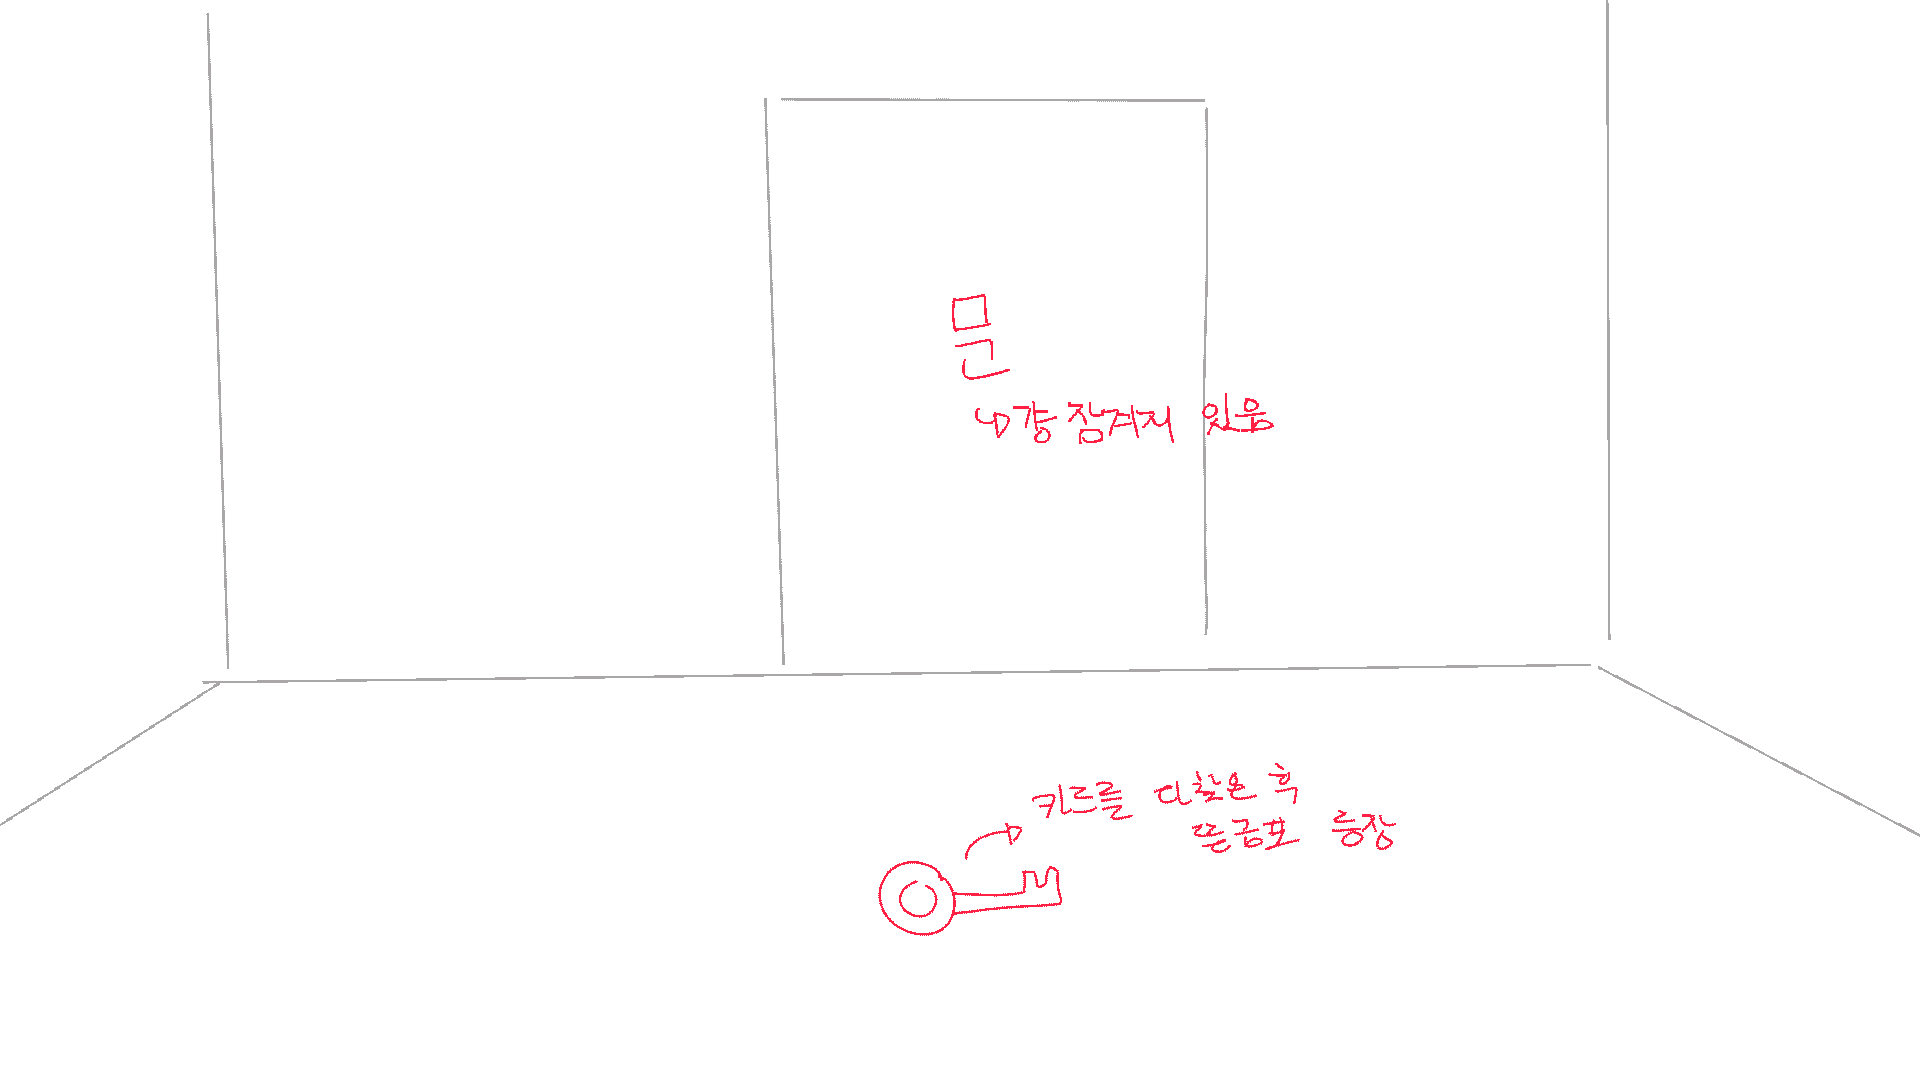 문
걍 잠겨져 있음
카드를 다찾은 후
뜬금포 등장